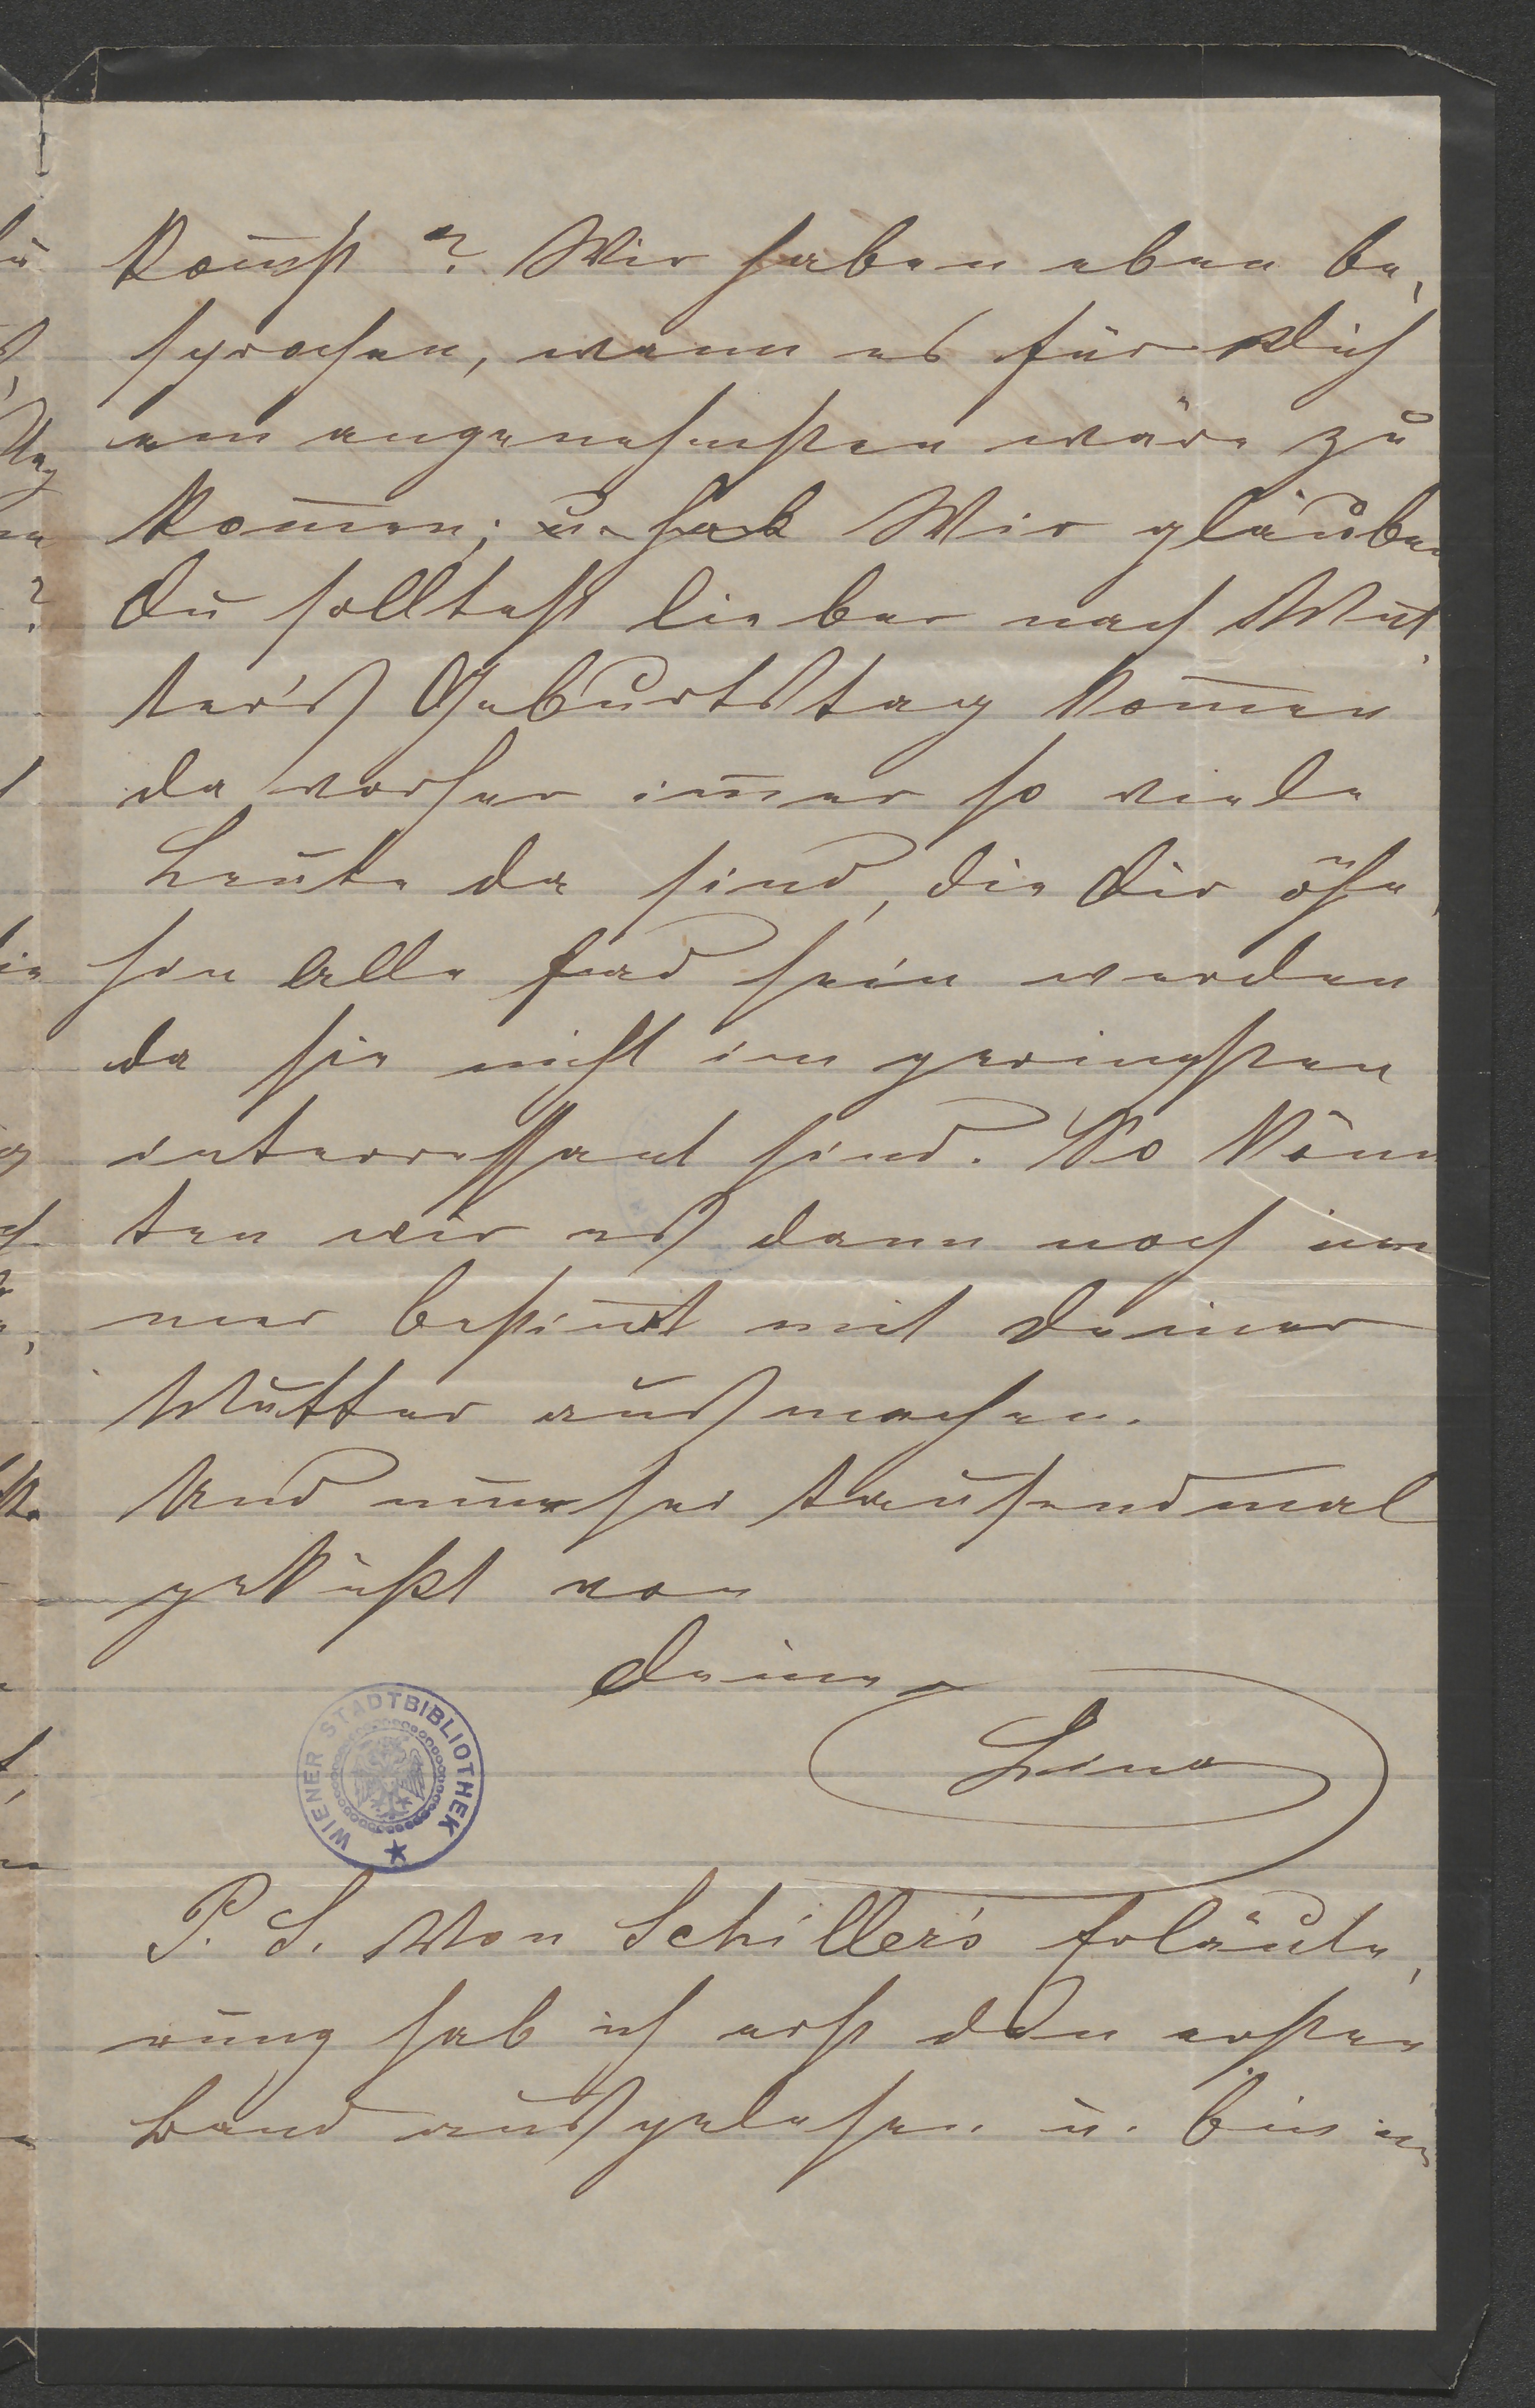 kom̅st? Wir haben eben be,
sprochen, wann es für Dich
am angenehmsten wäre zu
kom̅en; u. hab Wir glauben
Du solltest lieber nach Mut,
ter's Geburtstag kom̅en
da vorher im̅er so viele
Leute da sind, die Dir ohne,
hin alle fad sein werden
da sie nicht im geringsten
interressant sind. So könn
ten wir es dann noch im
mer bestim̅t mit Deiner
Mutter ausmachen.
Und nun sei tausendmal
geküßt von
Deiner
Lina
WIENER STADTBIBLIOTHEK
P. S. Von Schiller's Erläute,
rung hab ich erst den ersten
Band ausgelesen u. bin im